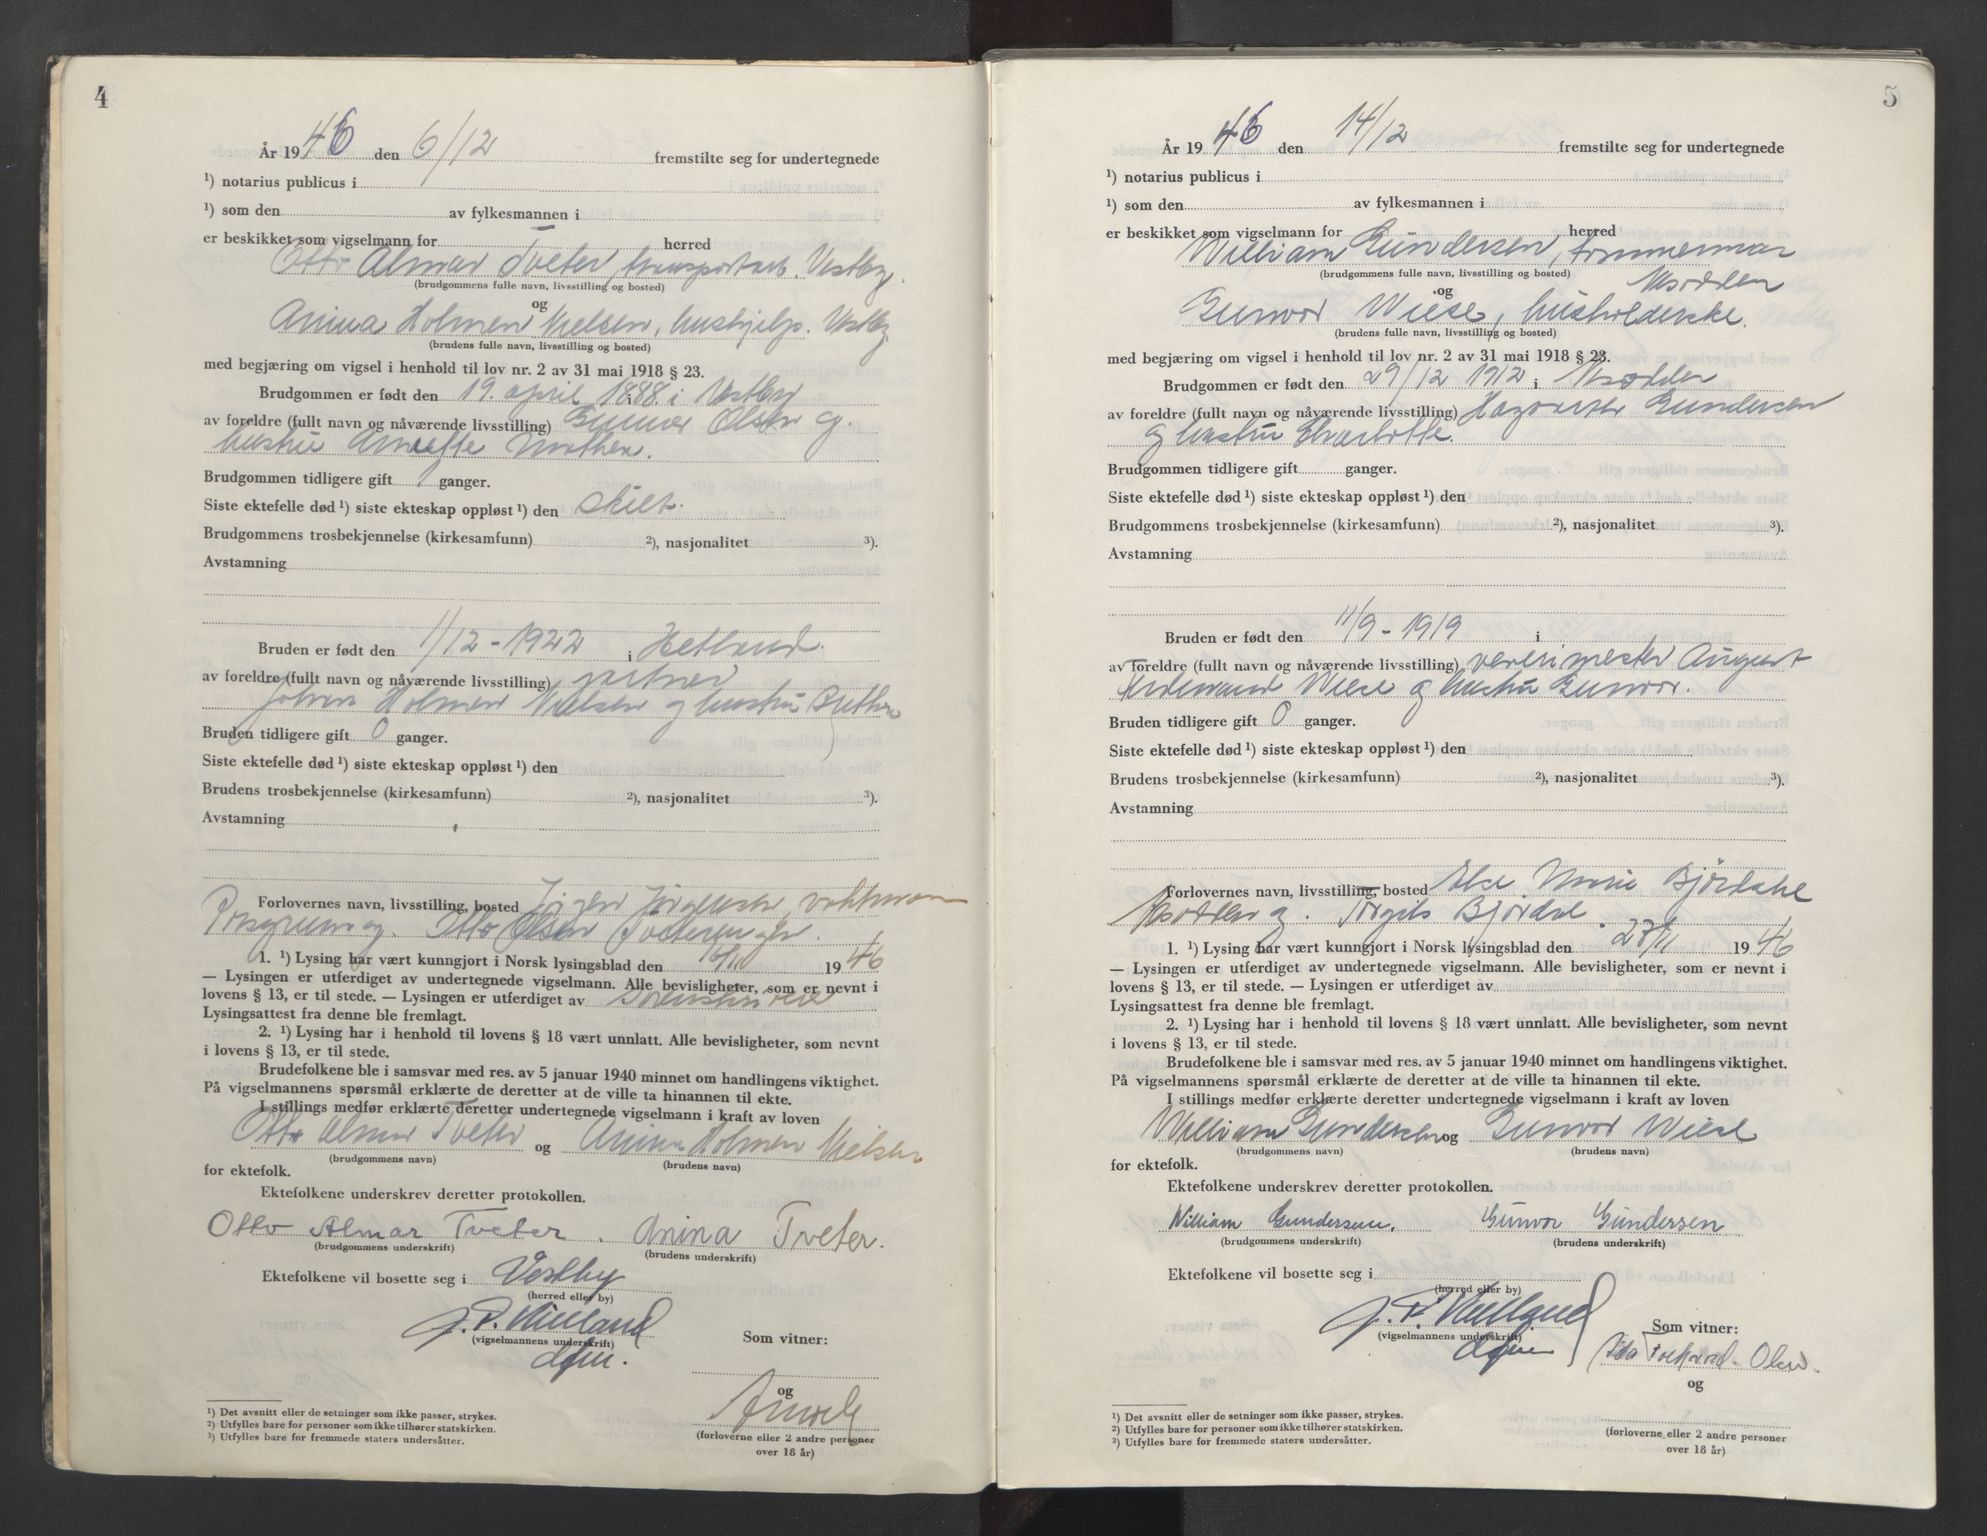 4
År 1946 den 6/12 fremstilte seg for undertegnede
¹) notarius publicus i
¹) som den av fylkesmannen i
er beskikket som vigselmann for herred
Otto Almar Tveter, transportarb. Vestby.
(brudgommens fulle navn, livsstilling og bosted)
og
Anina Holmen Nielsen, hushjelp. Vestby.
(brudens fulle navn, livsstilling og bosted)
med begjæring om vigsel i henhold til lov nr. 2 av 31 mai 1918 § 23.
Brudgommen er født den 19. april 1888 i Vestby
av foreldre (fullt navn og nåværende livsstilling) Gunner Olsen og
hustru
Brudgommen tidligere gift 1 ganger.
Siste ektefelle død ¹) siste ekteskap oppløst ¹) den skilt.
Brudgommens trosbekjennelse (kirkesamfunn) ²), nasjonalitet ³).
Avstamning
Bruden er født den 1/12 - 1922 i Hetland.
av foreldre (fullt navn og nåværende livsstilling)
Johan Holmen Nielsen og hustru
Bruden tidligere gift 0 ganger.
Siste ektefelle død ¹) siste ekteskap oppløst ¹) den
Brudens trosbekjennelse (kirkesamfunn) ²), nasjonalitet ³).
Avstamning
Forlovernes navn, livsstilling, bosted Jörgen Jörgensen, vaktmann
Porsgrunn og. Otto Olsen
1. ¹) Lysing har vært kunngjort i Norsk lysingsblad den 16/11 1946
— Lysingen er utferdiget av undertegnede vigselmann. Alle bevisligheter, som er nevnt i
lovens § 13, er til stede. — Lysingen er utferdiget av sorenskriveren
Lysingsattest fra denne ble fremlagt.
2. ¹) Lysing har i henhold til lovens § 18 vært unnlatt. Alle bevisligheter, som nevnt
i lovens § 13, er til stede.
Brudefolkene ble i samsvar med res. av 5 januar 1940 minnet om handlingens viktighet.
På vigselmannens spørsmål erklærte de deretter at de ville ta hinannen til ekte.
I stillings medfør erklærte deretter undertegnede vigselmann i kraft av loven
Otto Almar Tveter og Anina Holmen Nielsen
(brudgommens navn) (brudens navn)
for ektefolk.
Ektefolkene underskrev deretter protokollen.
Otto Almar Tveter. Anina Tveter.
(brudgommens underskrift) (brudens underskrift)
Ektefolkene vil bosette seg i Vestby
(herred eller by)
(vigselmannens underskrift)
Som vitner:
og
(forloverne eller 2 andre personer
over 18 år)
¹) Det avsnitt eller de setninger som ikke passer, strykes.
²) Utfylles bare for personer som ikke tilhører statskirken.
³) Utfylles bare for fremmede staters undersåtter.
5
År 1946 den 14/12 fremstilte seg for undertegnede
¹) notarius publicus i
¹) som den av fylkesmannen i
er beskikket som vigselmann for herred
William Gundersen, tømmermann
(brudgommens fulle navn, livsstilling og bosted)
og
Gunvor Wiese, husholderske.
(brudens fulle navn, livsstilling og bosted)
med begjæring om vigsel i henhold til lov nr. 2 av 31 mai 1918 § 23.
Brudgommen er født den 29/12 1912 i
av foreldre (fullt navn og nåværende livsstilling) Gundersen
og hustru Charlotte.
Brudgommen tidligere gift ganger.
Siste ektefelle død ¹) siste ekteskap oppløst ¹) den
Brudgommens trosbekjennelse (kirkesamfunn) ²), nasjonalitet ³).
Avstamning
Bruden er født den 11/9 - 1919 i
av foreldre (fullt navn og nåværende livsstilling) August
Ferdinand Wiese og hustru Gunvor.
Bruden tidligere gift 0 ganger.
Siste ektefelle død ¹) siste ekteskap oppløst ¹) den
Brudens trosbekjennelse (kirkesamfunn) ²), nasjonalitet ³).
Avstamning
Forlovernes navn, livsstilling, bosted Else Marie Bjørdahl
og. Torgils Bjørdal
1. ¹) Lysing har vært kunngjort i Norsk lysingsblad den 1946
— Lysingen er utferdiget av undertegnede vigselmann. Alle bevisligheter, som er nevnt i
lovens § 13, er til stede. — Lysingen er utferdiget av
Lysingsattest fra denne ble fremlagt.
2. ¹) Lysing har i henhold til lovens § 18 vært unnlatt. Alle bevisligheter, som nevnt
i lovens § 13, er til stede.
Brudefolkene ble i samsvar med res. av 5 januar 1940 minnet om handlingens viktighet.
På vigselmannens spørsmål erklærte de deretter at de ville ta hinannen til ekte.
I stillings medfør erklærte deretter undertegnede vigselmann i kraft av loven
William Gundersen og Gunvor Wiese
(brudgommens navn) (brudens navn)
for ektefolk.
Ektefolkene underskrev deretter protokollen.
William Gundersen. Gunvor Gundersen
(brudgommens underskrift) (brudens underskrift)
Ektefolkene vil bosette seg i
(herred eller by)
(vigselmannens underskrift)
Som vitner:
Ida Olsen.
og
(forloverne eller 2 andre personer
over 18 år)
¹) Det avsnitt eller de setninger som ikke passer, strykes.
²) Utfylles bare for personer som ikke tilhører statskirken.
³) Utfylles bare for fremmede staters undersåtter.